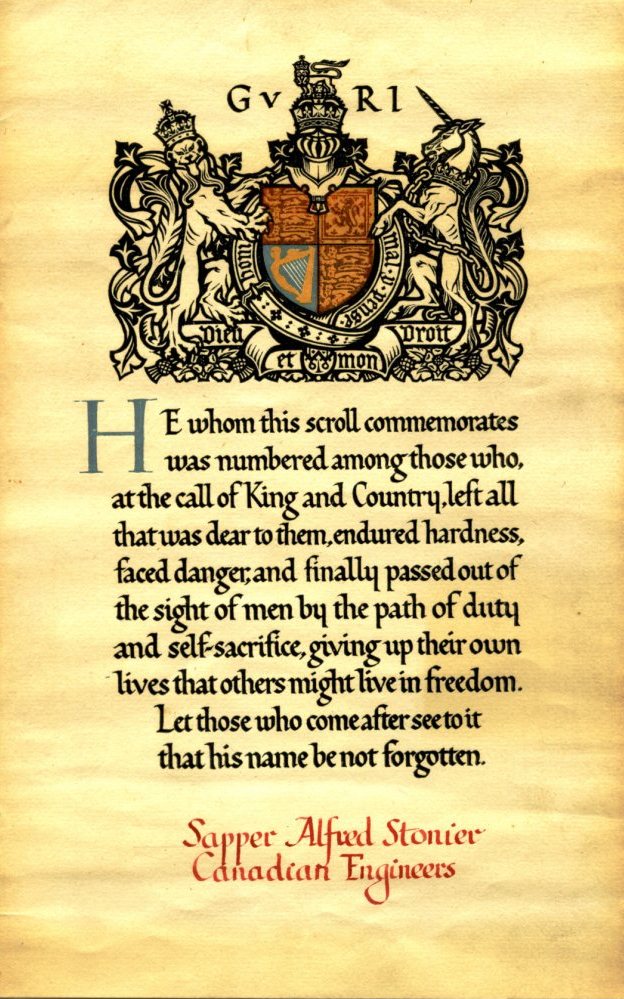 GV RI
Honi mal·y·pense
Dieu Droit
et mon
HE whom this scroll commemorates
was numbered among those who,
at the call of King and Country, left all
that was dear to them, endured hardness,
faced danger, and finally passed out of
the sight of men by the path of duty
and self-sacrifice, giving up their own
lives that others might live in freedom.
Let those who come after see to it
that his name be not forgotten.
Sapper Alfred Stonier
Canadian Engineers